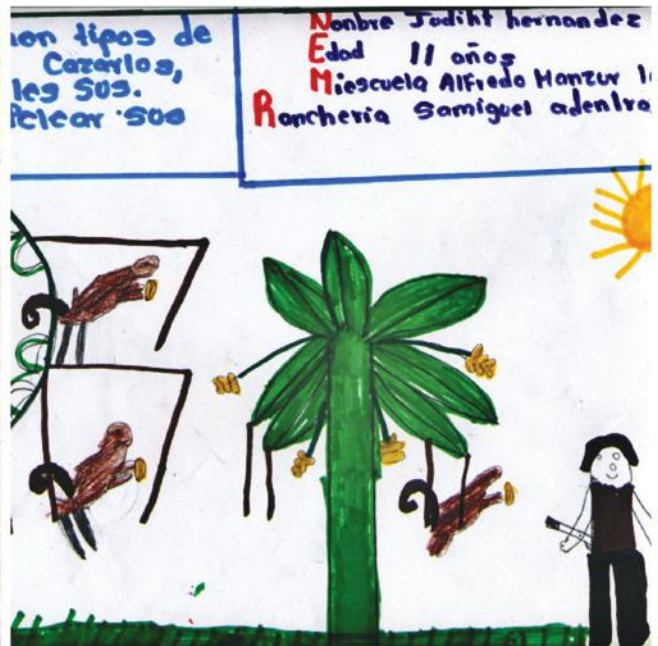 on tipos de
Cazarlos,
les sus.
Pelear sus
Nonbre Judiht hernandez
Edad 11 años
Miescuela Alfredo Manzur
Rancheria Samiguel adentro